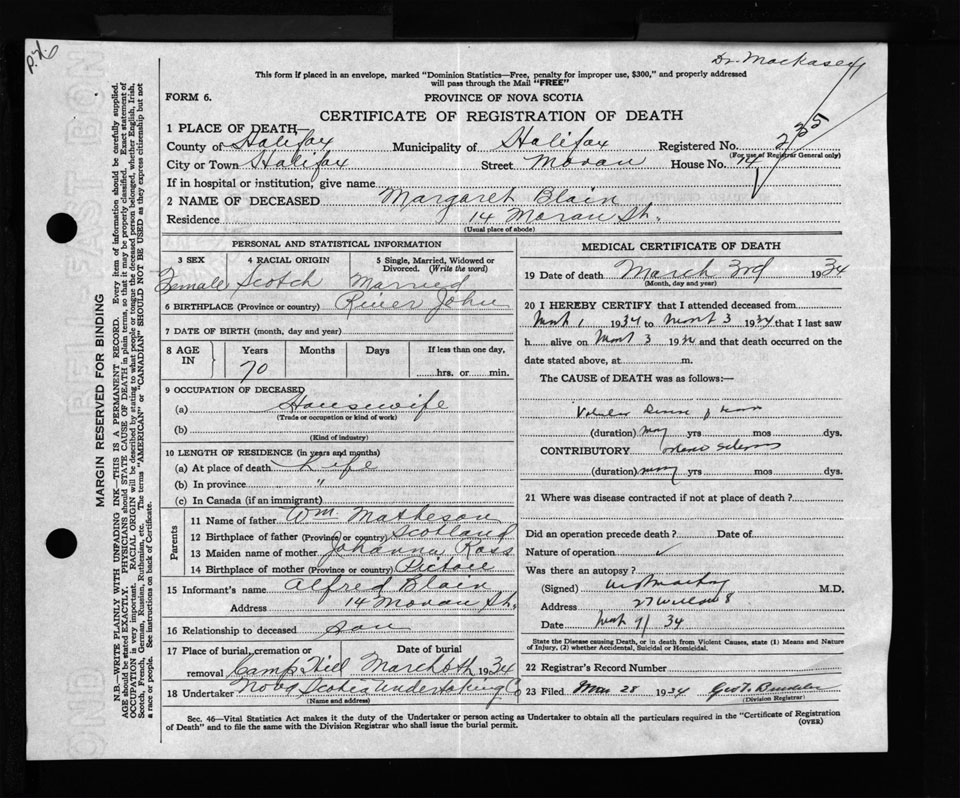 P.X.6
Dr. Mackasey
This form if placed in an envelope, marked "Dominion Statistics—Free, penalty for improper use, $300," and properly addressed
will pass through the Mail "FREE"
FORM 6.
PROVINCE OF NOVA SCOTIA
CERTIFICATE OF REGISTRATION OF DEATH
1 PLACE OF DEATH—
County of Halifax Municipality of Halifax Registered No.
(For use of Registrar General only)
City or Town Halifax Street Moran House No. 14
If in hospital or institution, give name
2 NAME OF DECEASED Margaret Blain
Residence 14 Moran St.
(Usual place of abode)
MARGIN RESERVED FOR BINDING
N.B.—WRITE PLAINLY WITH UNFADING INK—THIS IS A PERMANENT RECORD. Every item of information should be carefully supplied.
AGE should be stated EXACTLY. PHYSICIANS should STATE CAUSE OF DEATH in plain terms, so that it may be properly classified. Exact statement of
OCCUPATION is very important. RACIAL ORIGIN will be described by stating to what people or tongue the deceased person belonged, whether English, Irish,
Scotch, French, German, Russian, Ruthenian, etc. The terms "AMERICAN" or "CANADIAN" SHOULD NOT BE USED as they express citizenship but not
a race or people. See instructions on back of Certificate.
PERSONAL AND STATISTICAL INFORMATION
3 SEX 4 RACIAL ORIGIN 5 Single, Married, Widowed or
Divorced. (Write the word)
Female Scotch Married
6 BIRTHPLACE (Province or country) River John
7 DATE OF BIRTH (month, day and year)
8 AGE IN Years Months Days If less than one day,
70 hrs. or min.
9 OCCUPATION OF DECEASED
(a) Housewife
(Trade or occupation or kind of work)
(b)
(Kind of industry)
10 LENGTH OF RESIDENCE (in years and months)
(a) At place of death Life
(b) In province "
(c) In Canada (if an immigrant)
Parents
11 Name of father Wm. Matheson
12 Birthplace of father (Province or country) Scotland
13 Maiden name of mother Johanna Ross
14 Birthplace of mother (Province or country) Pictou
15 Informant's name Alfred Blain
Address 14 Moran St.
16 Relationship to deceased Son
17 Place of burial, cremation or
removal Camp Hill March 6th, 1934
18 Undertaker Nova Scotia Undertaking Co
(Name and address)
MEDICAL CERTIFICATE OF DEATH
19 Date of death March 3rd 1934
(Month, day and year)
20 I HEREBY CERTIFY that I attended deceased from
March 1 1934 to March 3 1934 that I last saw
h alive on March 3 1934 and that death occurred on the
date stated above, at m.
The CAUSE of DEATH was as follows:—
(duration) many yrs mos dys.
CONTRIBUTORY
(duration) many yrs mos dys.
21 Where was disease contracted if not at place of death?
Did an operation precede death? Date of
Nature of operation
Was there an autopsy?
(Signed) M.D.
Address
Date
State the Disease causing Death, or in death from Violent Causes, state (1) Means and Nature
of Injury, (2) whether Accidental, Suicidal or Homicidal.
22 Registrar's Record Number
23 Filed Mar 28 1934
(Division Registrar)
Sec. 46—Vital Statistics Act makes it the duty of the Undertaker or person acting as Undertaker to obtain all the particulars required in the "Certificate of Registration
of Death" and to file the same with the Division Registrar who shall issue the burial permit. (OVER)